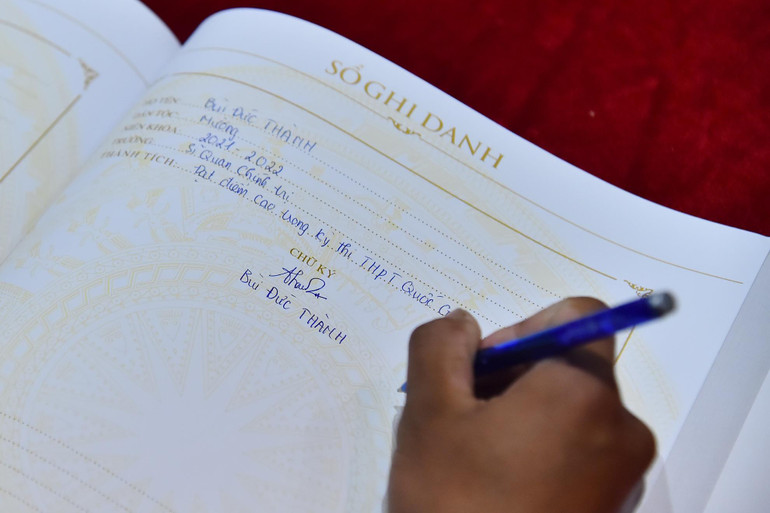 SỔ GHI DANH
HỌ TÊN: BÙI ĐỨC THÀNH
DÂN TỘC: Mường
NIÊN KHÓA: 2021 - 2022
TRƯỜNG: Sĩ Quan Chính trị
THÀNH TÍCH: Đạt điểm cao trong kỳ thi THPT QUỐC
CHỮ KÝ
BÙI ĐỨC THÀNH